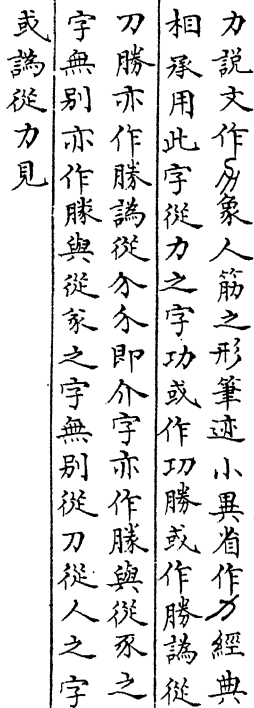 力說文作象人筋之形筆迹小異省作力經典
相承用此字從力之字功或作㓛勝或作勝譌從
刀勝亦作勝譌從分分即介字亦作勝與從豕之
字無别亦作勝與從豖之字無别從刀從人之字
或譌從力見